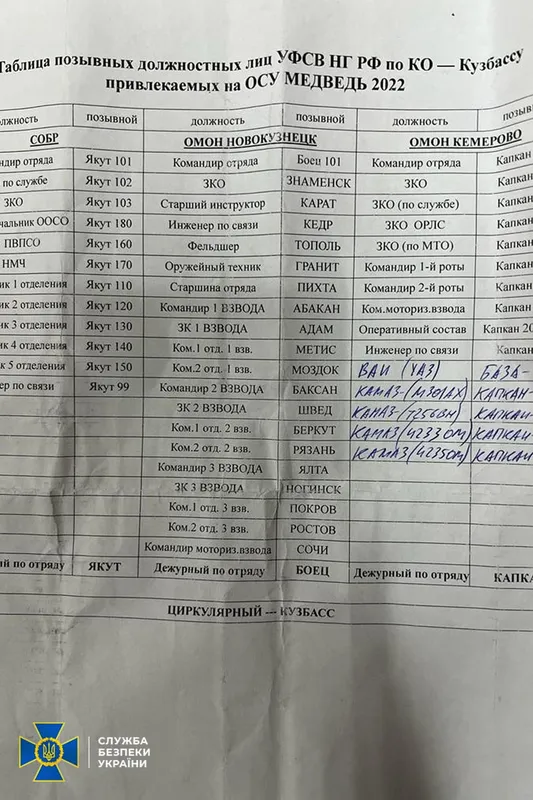 Таблица позывных должностных лиц УФСВ НГ РФ по КО — Кузбассу
привлекаемых на ОСУ МЕДВЕДЬ 2022
позывной должность позывной должность
СОБР ОМОН НОВОКУЗНЕЦК ОМОН КЕМЕРОВО
отряда Якут 101 Командир отряда Боец 101 Командир отряда Капкан
по службе Якут 102 ЗКО ЗНАМЕНСК ЗКО Капкан
ЗКО Якут 103 Старший инструктор КАРАТ ЗКО (по службе) Капкан
ООСО Якут 180 Инженер по связи КЕДР ЗКО ОРЛС Капкан
ПВПСО Якут 160 Фельдшер ТОПОЛЬ ЗКО (по МТО) Капкан
НМЧ Якут 170 Оружейный техник ГРАНИТ Командир 1-й роты Капкан
1 отделения Якут 110 Старшина отряда ПИХТА Командир 2-й роты Капкан
2 отделения Якут 120 Командир 1 ВЗВОДА АБАКАН Ком.моториз.взвода Капкан
3 отделения Якут 130 ЗК 1 ВЗВОДА АДАМ Оперативный состав Капкан 20
4 отделения Якут 140 Ком.1 отд. 1 взв. МЕТИС Инженер по связи Капкан
5 отделения Якут 150 Ком.2 отд. 1 взв. МОЗДОК ВАИ (УАЗ) БАЗА-
по связи Якут 99 Командир 2 ВЗВОДА БАКСАН КАМАЗ-(М301АХ) КАПКАН-
ЗК 2 ВЗВОДА ШВЕД КАМАЗ-(Т256ВН) КАПКАН-
Ком.1 отд. 2 взв. БЕРКУТ КАМАЗ(4233ОМ) КАПКАН-
Ком.2 отд. 2 взв. РЯЗАНЬ КАМАЗ(4235ОМ) КАПКАН-
Командир 3 ВЗВОДА ЯЛТА
ЗК 3 ВЗВОДА НОГИНСК
Ком.1 отд. 3 взв. ПОКРОВ
Ком.2 отд. 3 взв. РОСТОВ
Командир моториз.взвода СОЧИ
по отряду ЯКУТ Дежурный по отряду БОЕЦ Дежурный по отряду
ЦИРКУЛЯРНЫЙ --- КУЗБАСС
СЛУЖБА
БЕЗПЕКИ
УКРАЇНИ